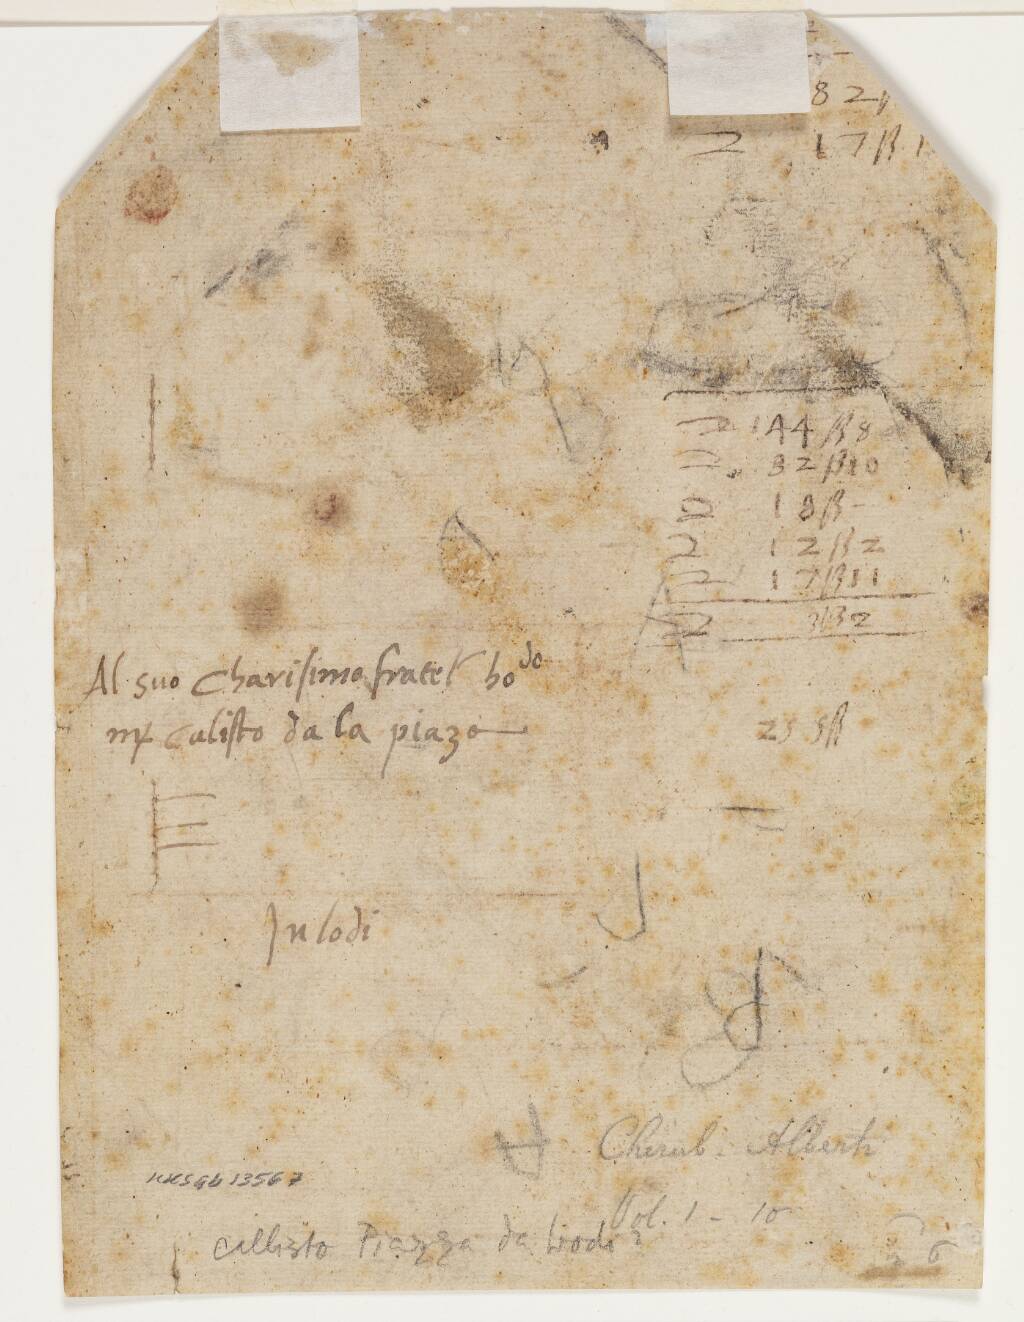 8 2
17 ß 1
144 ß 8
32 ß 10
18 ß -
12 ß 2
17 ß 11
Al suo Charisimo fratel ho^do
mʳ Calisto da la piaza
25 5 ß
In lodi
Cherub. Alberti
KKSgb 13567
Vol. 1 - 10
Callisto Piazza da Lodi ?
6